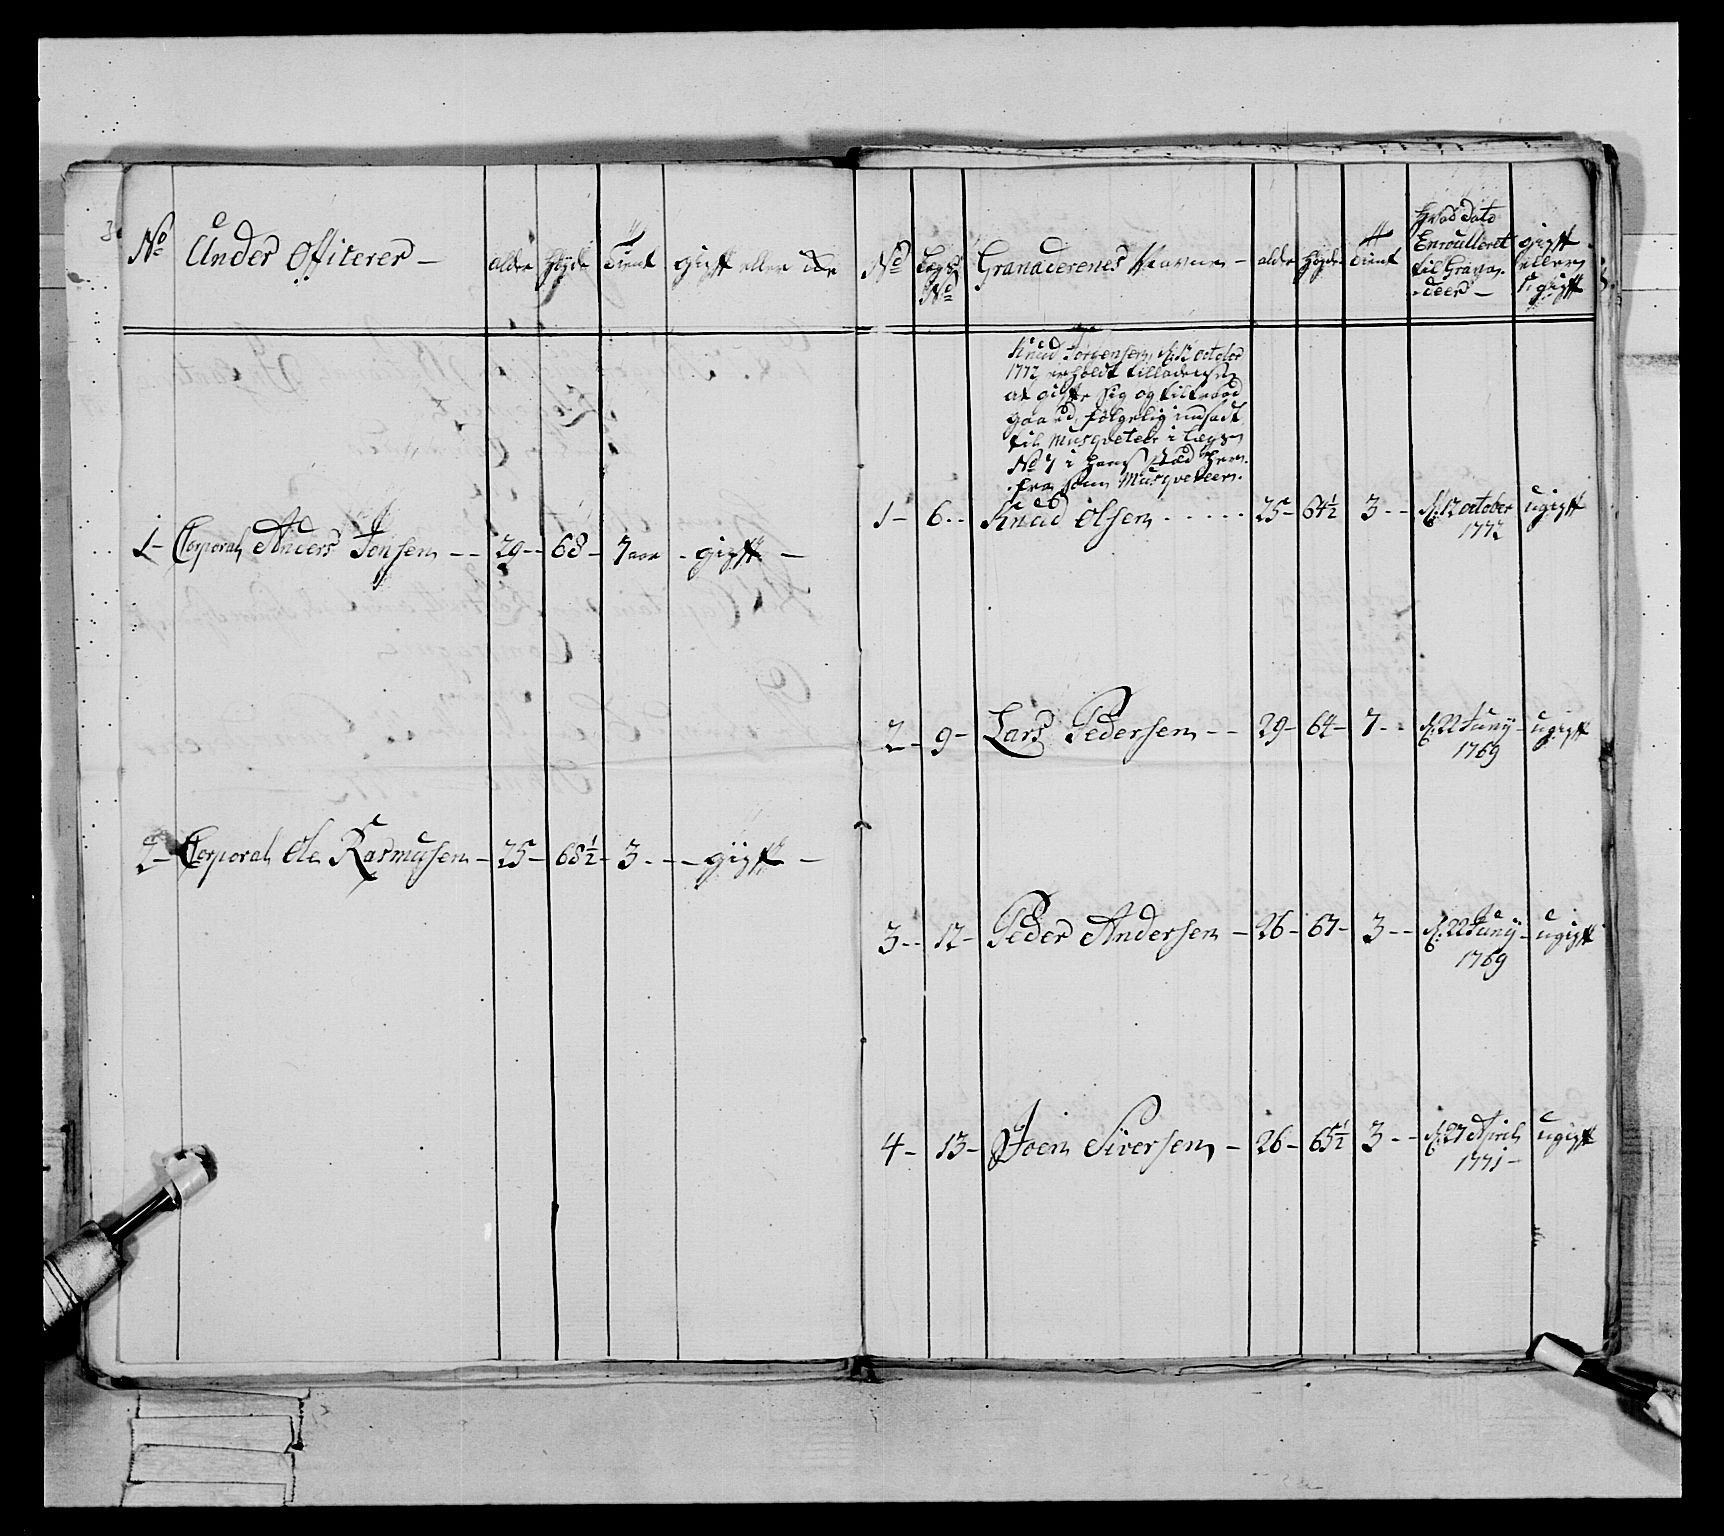 No Under Officerer - alder Høyde tient gift eller ikke
1 - Corporal Anders Jonsen - - 29 - 68 - 7 aar - gift -
2 - Corporal Ole Rasmusen - 25 - 68½ - 3 - - - gift -
No Lægs No Granaderenes Navne - alder Høyde tient
Hvad dato
Enroulleret
til Grana-
deer -
gift
eller
ugift
Knud Jørgensen, d: 12 october
1772 erholdt tilladelse
at gifte sig og
gaa ud, følgelig indsadt
til Musqveteer i Lægs
No 7 i hans stæd
fra Musqveteer.
1 - 6 - - Knud Olsen - - - - - 25 - 64½ 3 - - d: 12 october ugift
1772
2 - 9 - Lars Pedersen - - 29 - 64 - 7 - - d: 22 Juny - ugift
1769
3 - - 12 - Peder Andersen - 26 - 67 - 3 - - d: 22 Juny - ugift
1769
4 - 13 - Joen Siversen - 26 - 65½ 3 - - d: 27 April ugift
1771 -